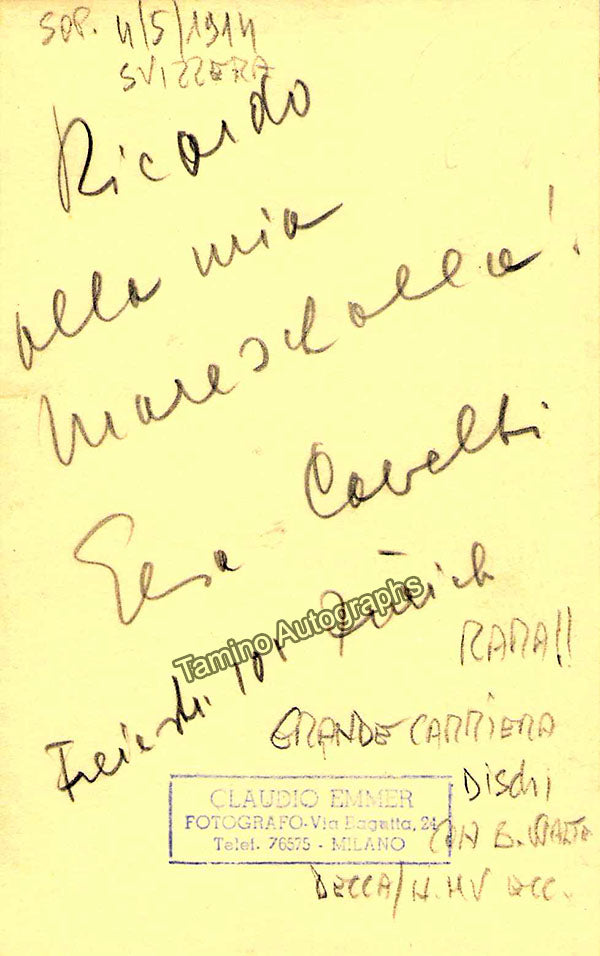 SOP. 4/5/1914
SVIZZERA
Ricardo
alla mia
Mareschalla!
Elsa Cavelti
Freiestr. 101 Zürich
Tamino Autographs
RARA!!
GRANDE CARRIERA
DISCHI
CON B. WALTER
CLAUDIO EMMER
FOTOGRAFO-Via Bagutta, 24
Telef. 76575 - MILANO
DECCA/H.MV ECC.